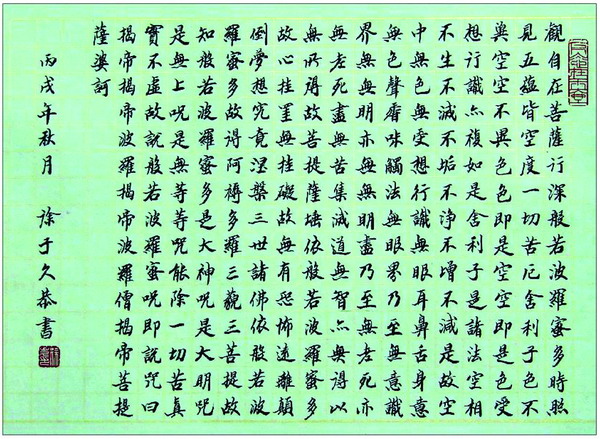 觀自在菩薩行深般若波羅蜜多時照
見五蘊皆空度一切苦厄舍利子色不
異空空不異色色即是空空即是色受
想行識亦復如是舍利子是諸法空相
不生不滅不垢不淨不增不減是故空
中無色無受想行識無眼耳鼻舌身意
無色聲香味觸法無眼界乃至無意識
界無無明亦無無明盡乃至無老死亦
無老死盡無苦集滅道無智亦無得以
無所得故菩提薩埵依般若波羅蜜多
故心挂罣無挂礙故無有恐怖遠離顛
倒夢想究竟涅槃三世諸佛依般若波
羅蜜多故得阿耨多羅三藐三菩提故
知般若波羅蜜多是大神咒是大明咒
是無上咒是無等等咒能除一切苦真
實不虛故說般若波羅蜜咒即說咒曰
揭帝揭帝波羅揭帝波羅僧揭帝菩提
薩婆訶
丙戌年秋月 徐于久恭書